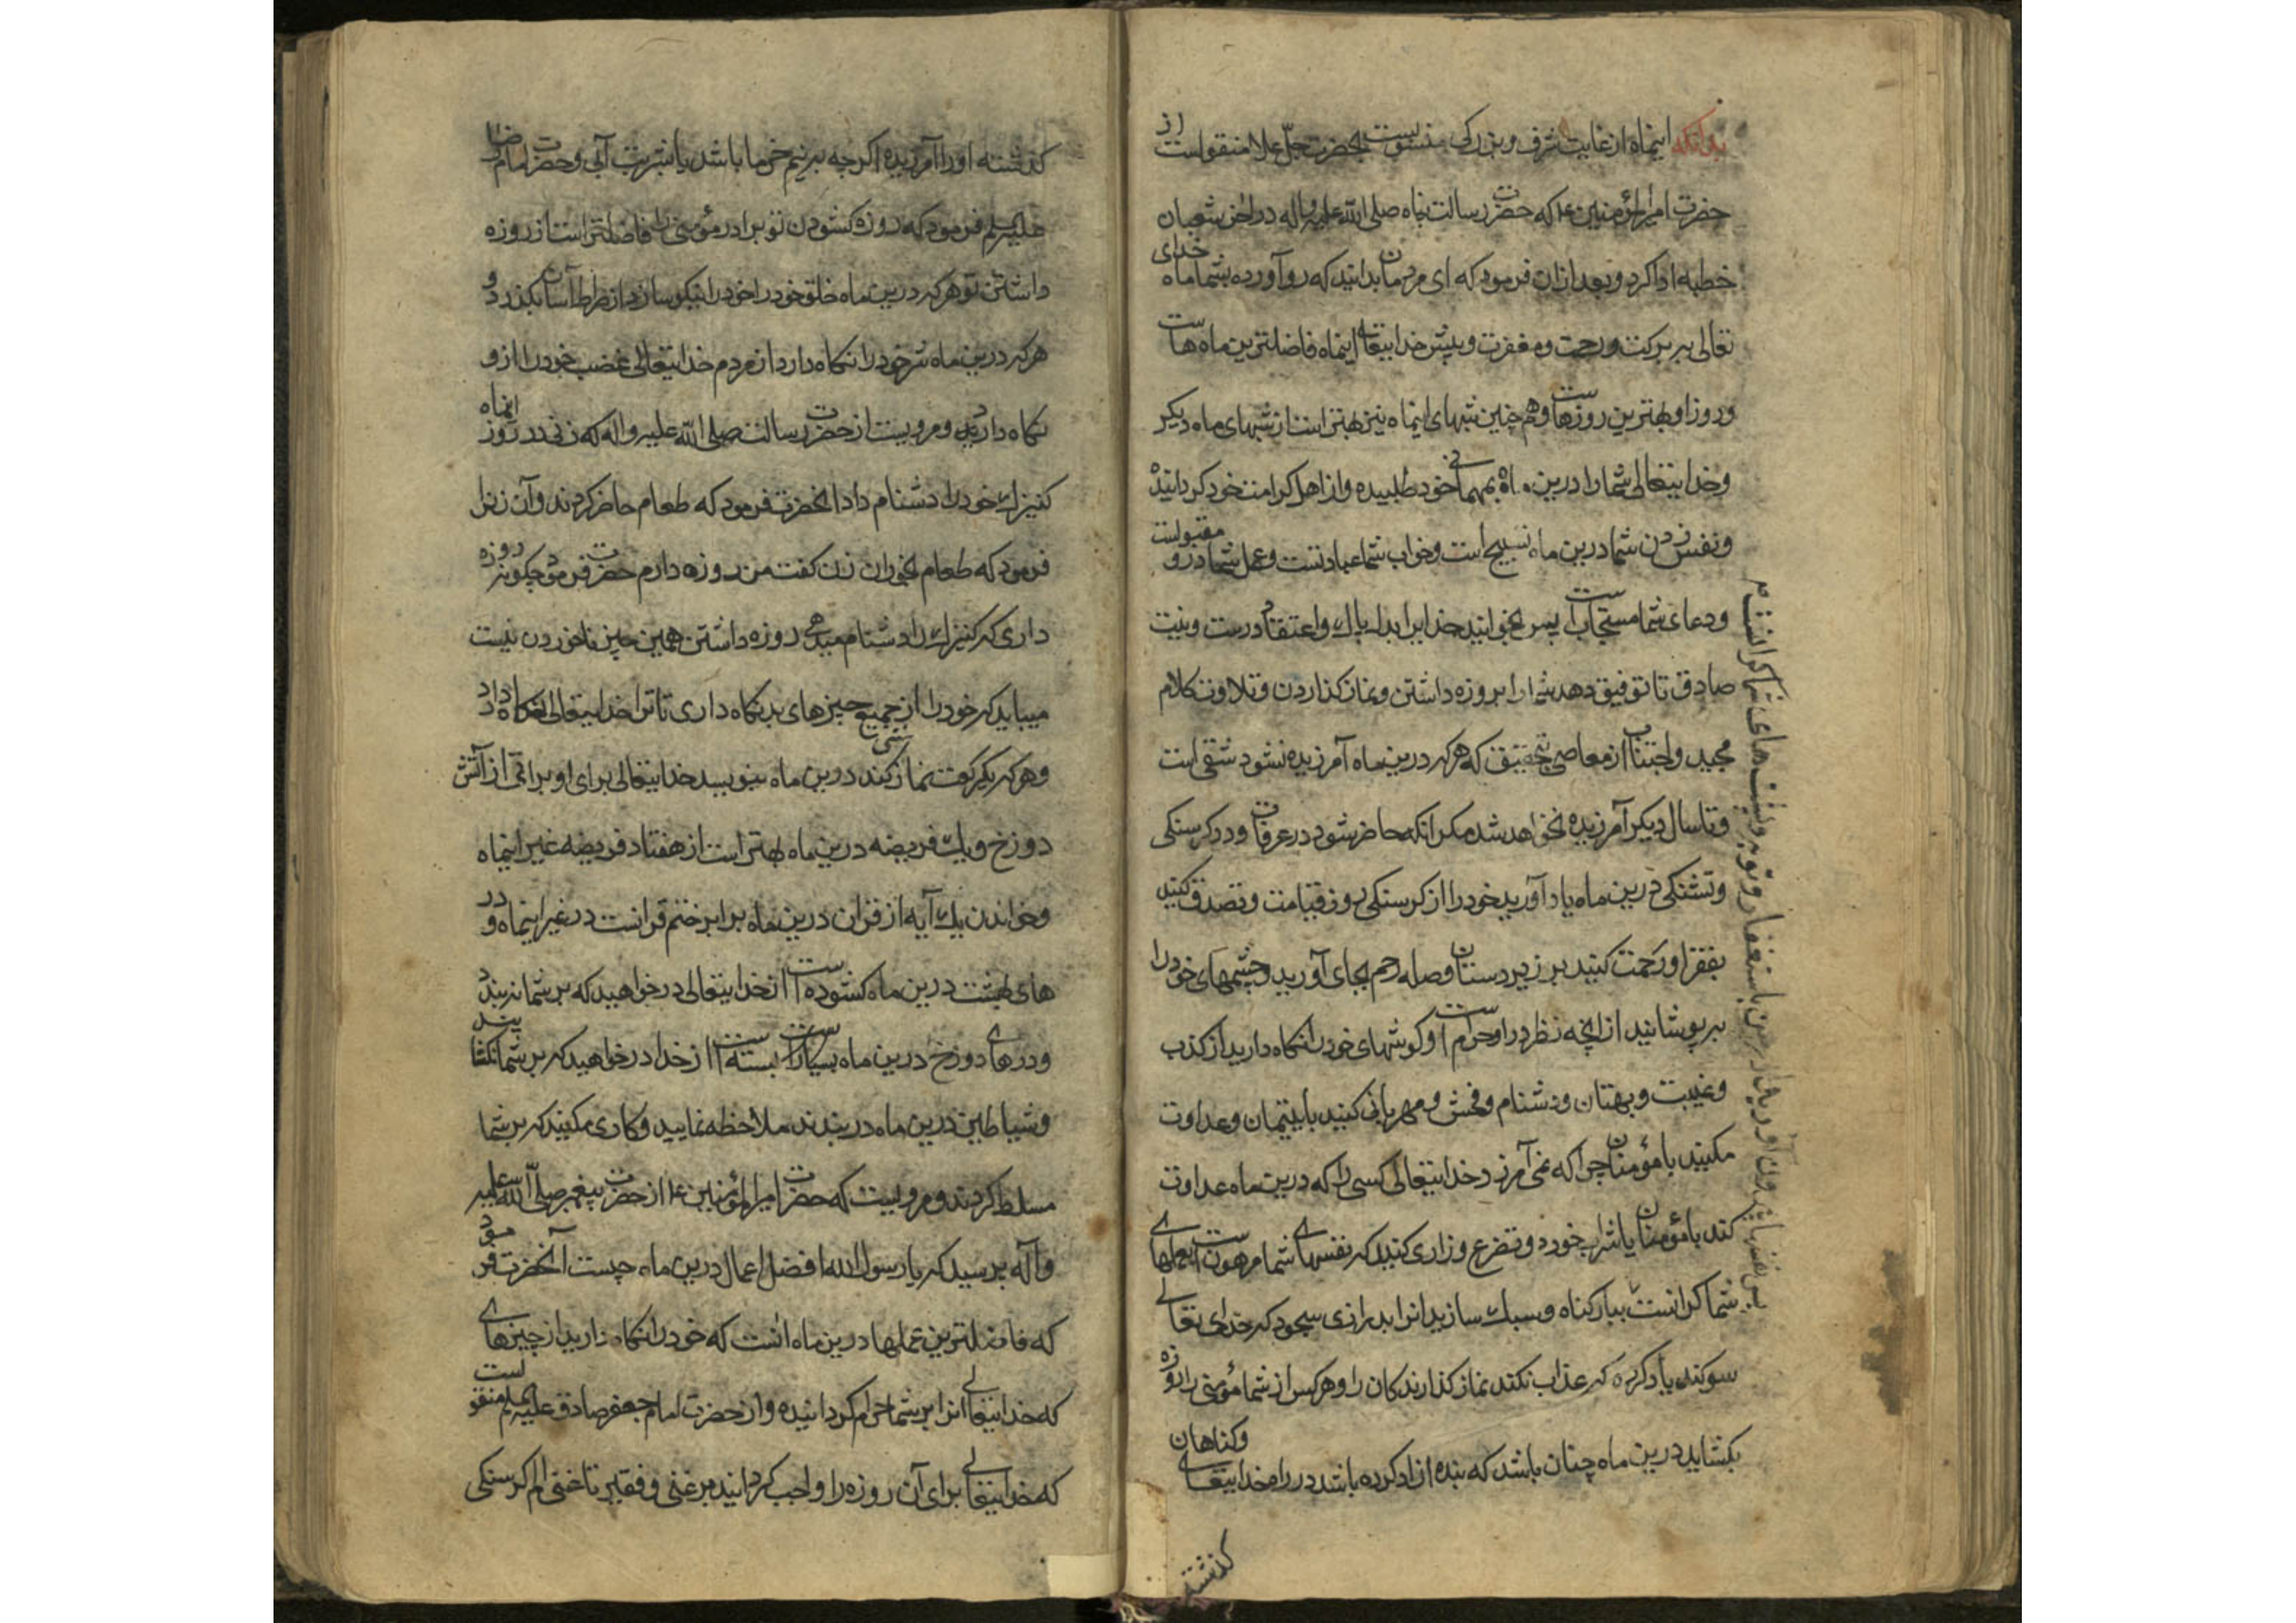 بدانکه اینماه از غایت شرف و بزرگی منسوبست بحضرت جلّ علا منقولست از
حضرت امیرالمؤمنین ع که حضرت رسالت پناه صلی الله علیه واله در اخر شعبان
خطبه ادا کرد و بعد ازان فرمود که ای مردمان بدانید که رو آورده بشما ماه خدای
تعالی ببرکت و رحمت و مغفرت و پیش خدایتعالی اینماه فاضلترین ماه هاست
و روز او بهترین روزهاست و هم چنین شبهای اینماه نیز بهتر است از شبهای ماه دیکر
و خدایتعالی شما را درین ماه بمهمانی خود طلبیده و از اهل کرامت خود کردانیده
و نفس زدن شما درین ماه تسبیح است و خواب شما عبادتست و عمل شما درو مقبولست
و دعای شما مستجابست پس بخوانید خدایرا بدل پاک و اعتقاد درست و نیت
صادق تا توفیق دهد شما را بروزه داشتن و نماز کذاردن و تلاوت کلام
مجید و اجتناب از معاصی بتحقیق که هرکه درین ماه آمرزیده نشود شقی است
و تا سال دیکر آمرزیده نخواهد شد مکر انکه حاضر شود در عرفات و در کرسنکی
و تشنکی درین ماه یاد آورید خود را از کرسنکی روز قیامت و تصدق کنید
بفقرا و رحمت کنید بر زیردستان و صله رحم بجای آورید و چشمهای خود را
بپوشانید از انچه نظر در او حرامست و کوشهای خود را نکاه دارید از کذب
و غیبت و بهتان و دشنام و فحش و مهربانی کنید با یتیمان و عداوت
مکنید با مؤمنان چرا که نمی آمرزد خدایتعالی کسی را که درین ماه عداوت
کند با مؤمنان یا شراب خورد و تضرع و زاری کنید که نفسهای شما مرهونست بعملهای
شما کرانست ببار کناه و سبک سازید انرا بدرازی سجود که خدای تعالی
سوکند یاد کرده که عذاب نکند نماز کذارندکان را و هرکس از شما مؤمنی را روزه
بکشاید درین ماه چنان باشد که بنده ازاد کرده باشد در راه خدایتعالی و کناهان
کذشته
کذشته او را آمرزیده اکرچه بر نیم خرما باشد یا بشربت آبی و حضرت امام رضا
علیه السلم فرمود که روزه کشودن تو برادر مؤمنی را فاضلتر است از روزه
داشتن تو هرکه درین ماه خلق خود را نیکو سازد از صراط آسان بکذرد و
هرکه درین ماه شر خود را نکاه دارد از مردم خدایتعالی غضب خود را ازو
نکاه دارد و مرویست از حضرت رسالت صلی الله علیه واله که زنی در روز اینماه
کنیزک خود را دشنام داد انحضرت فرمود که طعام حاضر کردند و آن زنرا
فرمود که طعام بخور ان زن کفت من روزه دارم حضرت فرمود چکونه روزه
داری که کنیزک را دشنام میدهی روزه داشتن همین چیز ناخوردن نیست
میباید که خود را از جمیع چیزهای بد نکاه داری تا ترا خدایتعالی نکاه دارد
و هرکه یکرکعت نماز سنتی کند درین ماه بنویسد خدایتعالی برای او براتی از آتش
دوزخ و یک فریضه درین ماه بهتر است از هفتاد فریضه غیر اینماه
و خواندن یک آیه از قران درین ماه برابر ختم قرانست در غیر اینماه و در
های بهشت درین ماه کشوده است از خدایتعالی درخواهید که بر شما نبندد
و درهای دوزخ درین ماه بسته است از خدا درخواهید که بر شما نکشاید
و شیاطین درین ماه در بندند ملاحظه نمایید و کاری مکنید که بر شما
مسلط کردند و مرویست که حضرت امیرالمؤمنین ع از حضرت پیغمبر صلی الله علیه
وآله پرسید که یا رسول الله افضل اعمال درین ماه چیست آنحضرت فرمود
که فاضلترین عملها درین ماه انست که خود را نکاه دارید از چیزهای
که خدایتعالی انرا بر شما حرام کردانیده و از حضرت امام جعفر صادق علیه السلم منقولست
که خدایتعالی برای آن روزه را واجب کردانید بر غنی و فقیر تا غنی الم کرسنکی